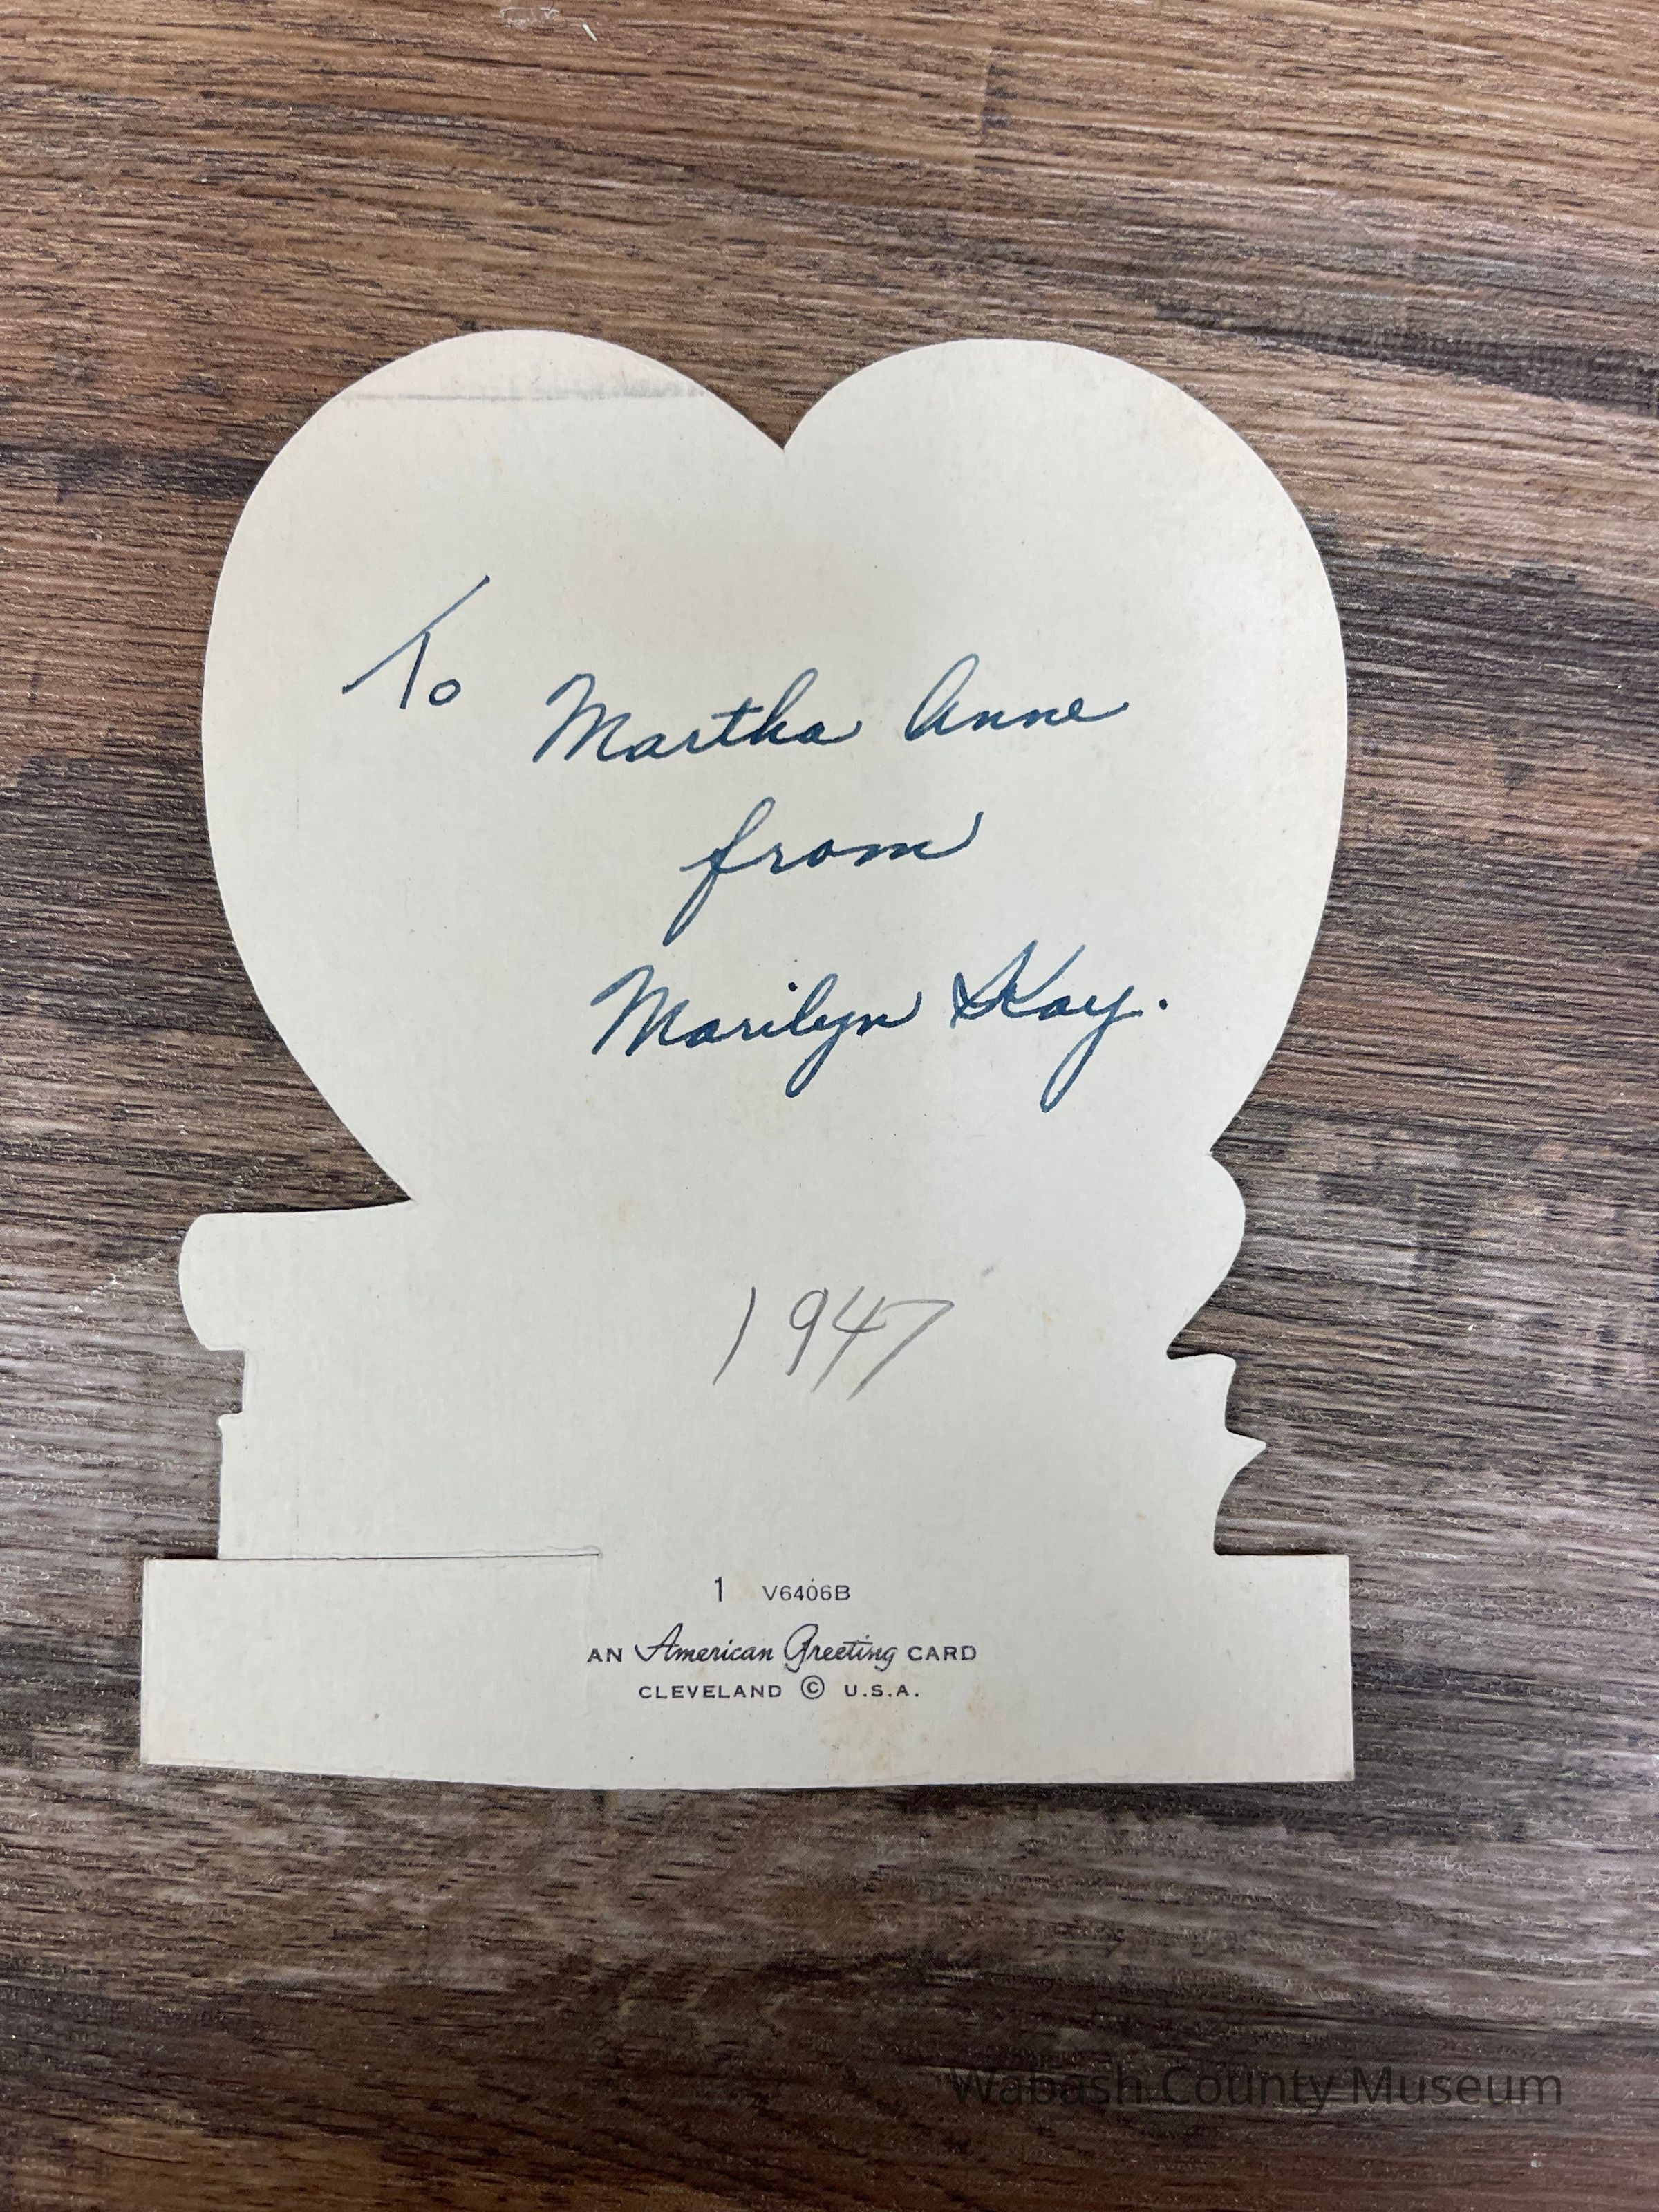 To Martha Anne
from
Marilyn Kay.
1947
1 V6406B
AN American Greeting CARD
CLEVELAND © U.S.A.
Wabash County Museum